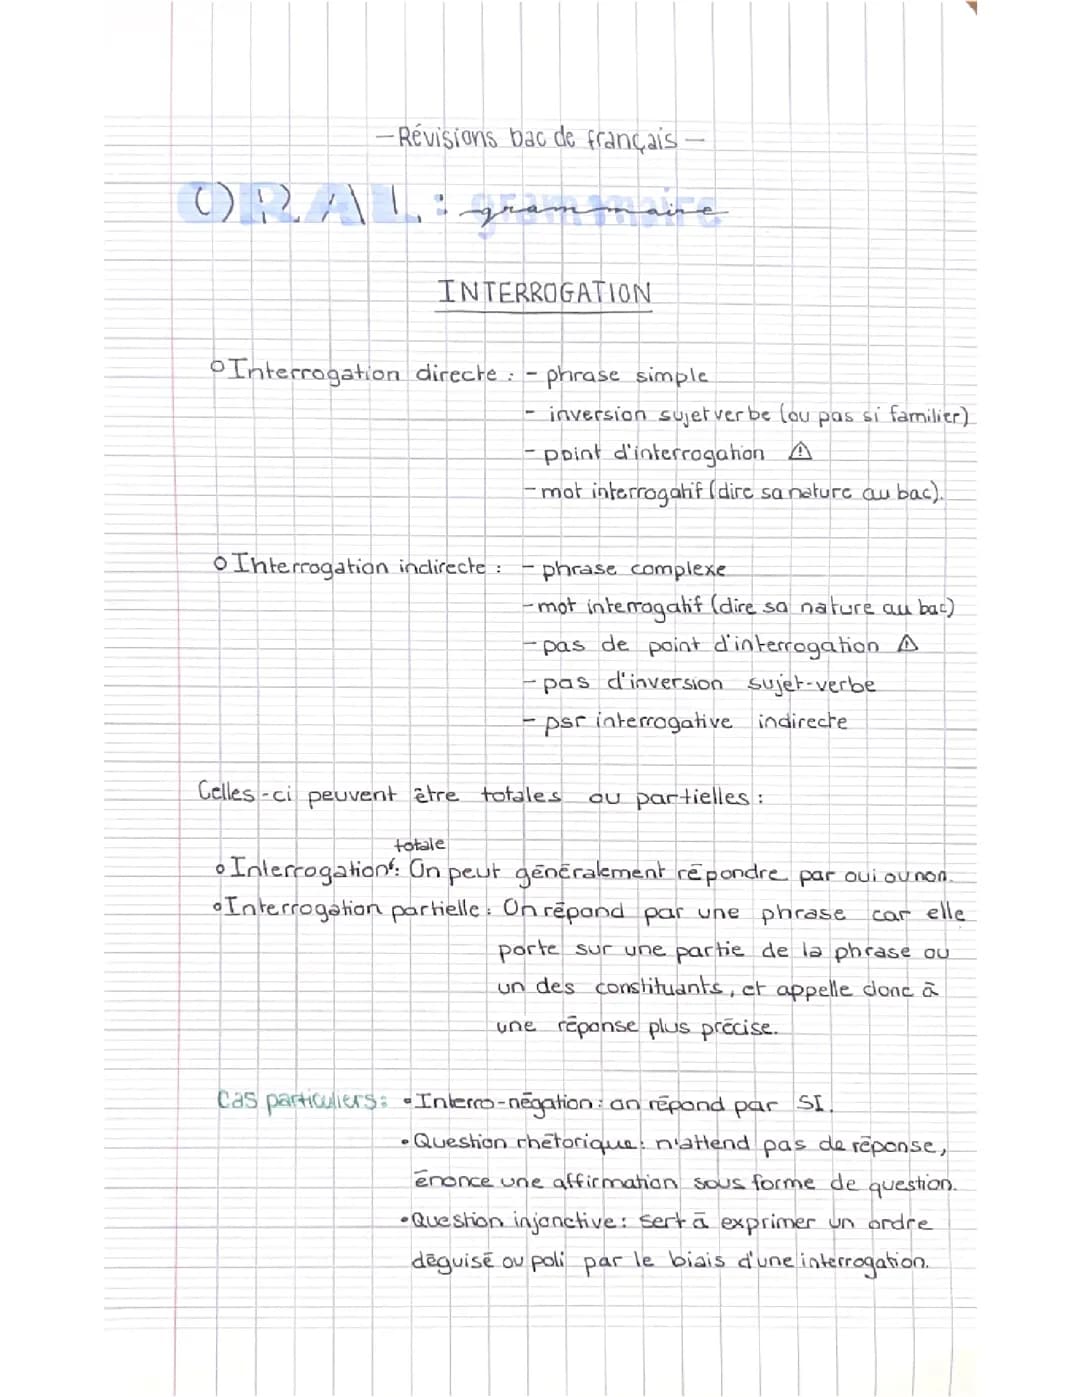 -Révisions bac de français-
ORAL : grammaire
INTERROGATION
○ Interrogation directe : - phrase simple
- inversion sujet verbe (ou pas si familier)
- point d'interrogation ⚠
- mot interrogatif (dire sa nature au bac).
○ Interrogation indirecte : - phrase complexe
- mot interrogatif (dire sa nature au bac)
- pas de point d'interrogation ⚠
- pas d'inversion sujet-verbe
- psr interrogative indirecte
Celles-ci peuvent être totales ou partielles :
totale
• Interrogation : On peut généralement répondre par oui ou non.
• Interrogation partielle : On répond par une phrase car elle
porte sur une partie de la phrase ou
un des constituants, et appelle donc à
une réponse plus précise.
Cas particuliers : • Interro-négation : on répond par SI.
• Question rhétorique : n'attend pas de réponse,
énonce une affirmation sous forme de question.
• Question injonctive : sert à exprimer un ordre
déguisé ou poli par le biais d'une interrogation.